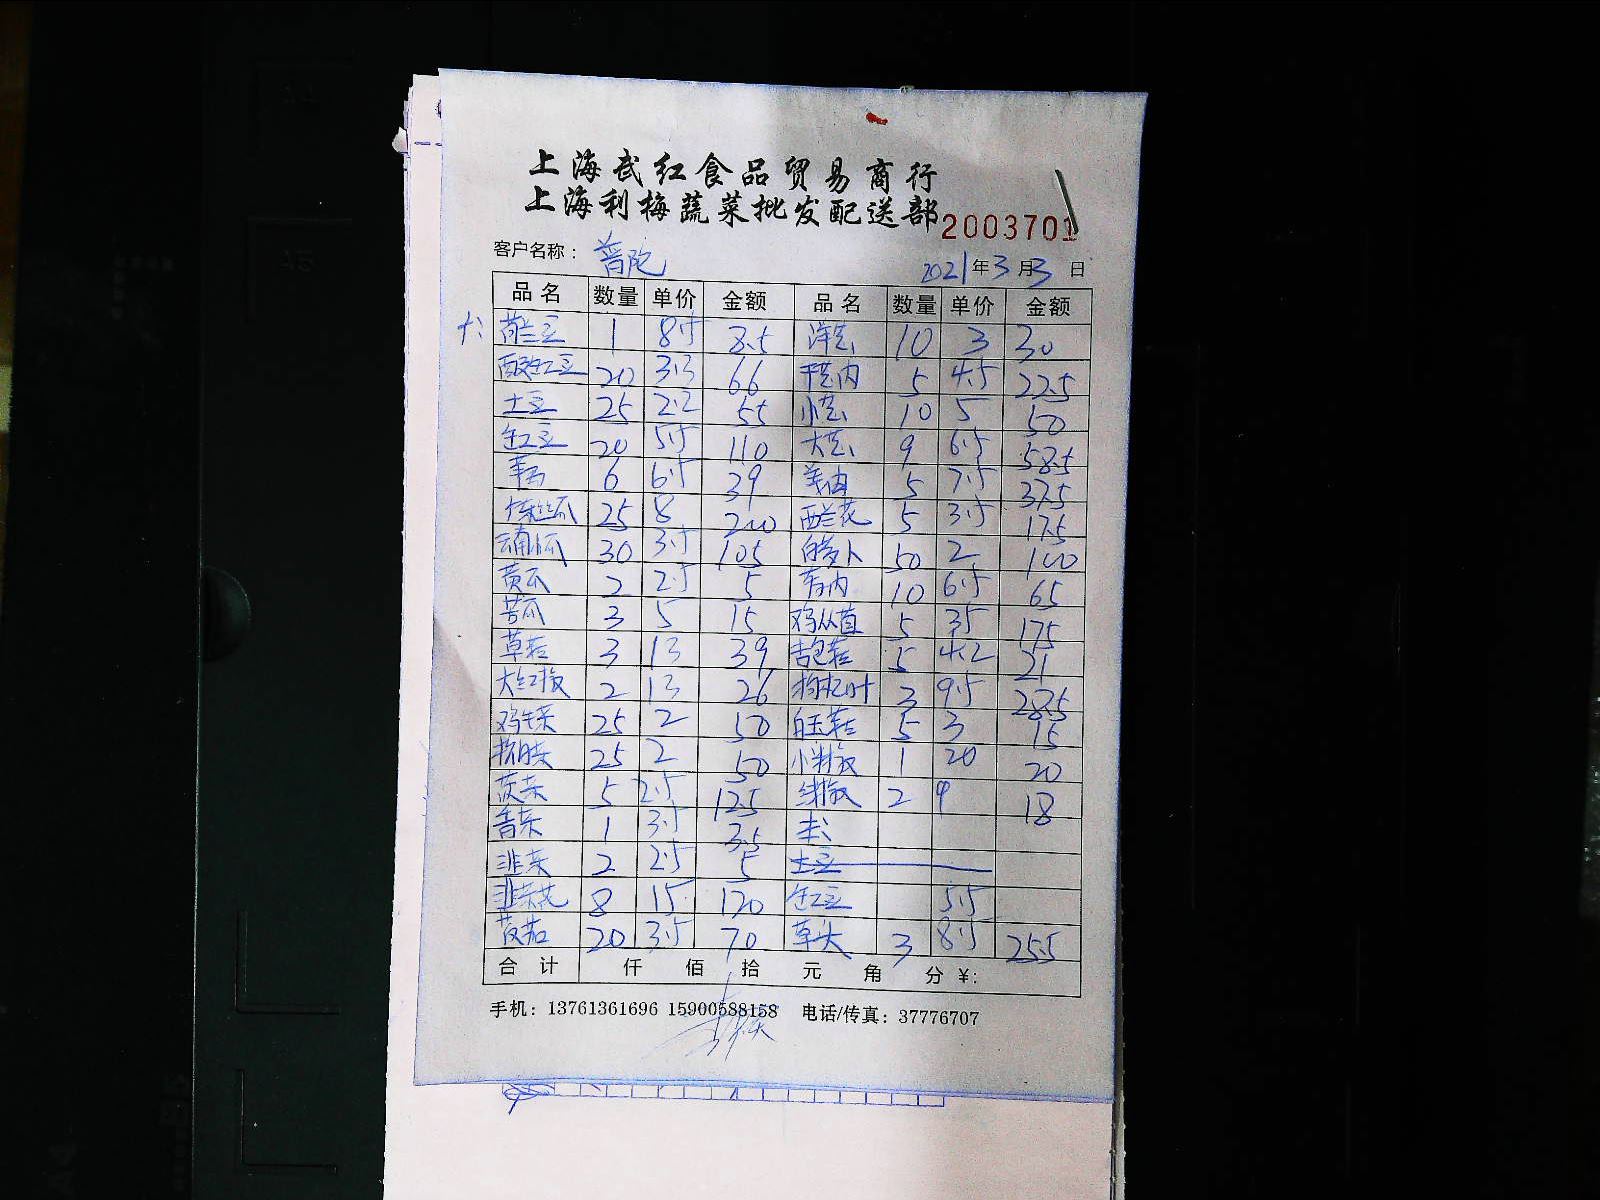 上海武红食品贸易商行
上海利梅蔬菜批发配送部 2003701
客户名称： 普陀 2021年3月3日
品名 数量 单价 金额 品名 数量 单价 金额
荷兰豆 1 8.5 8.5 洋芋 10 3 30
酸豇豆 20 3.3 66 5 4.5 22.5
土豆 25 2.2 55 10 5 50
豇豆 20 5.5 110 9 6.5 58.5
6 6.5 39 5 7.5 37.5
25 8 200 西兰花 5 3.5 17.5
30 3.5 105 白萝卜 50 2 100
黄瓜 2 2.5 5 10 6.5 65
苦瓜 3 5 15 5 35 175
草菇 3 13 39 5 4.2 21
大红椒 2 13 26 枸杞叶 3 9.5 28.5
鸡毛菜 25 2 50 白玉菇 5 3 15
25 2 50 小米椒 1 20 20
5 2.5 12.5 2 9 18
香菜 1 3.5 3.5
韭菜 2 2.5 5 土豆
韭菜花 8 15 120 豇豆 5.5
茄 20 3.5 70 草头 3 8.5 25.5
合计 仟 佰 拾 元 角 分 ¥:
手机：13761361696 15900588158 电话/传真：37776707